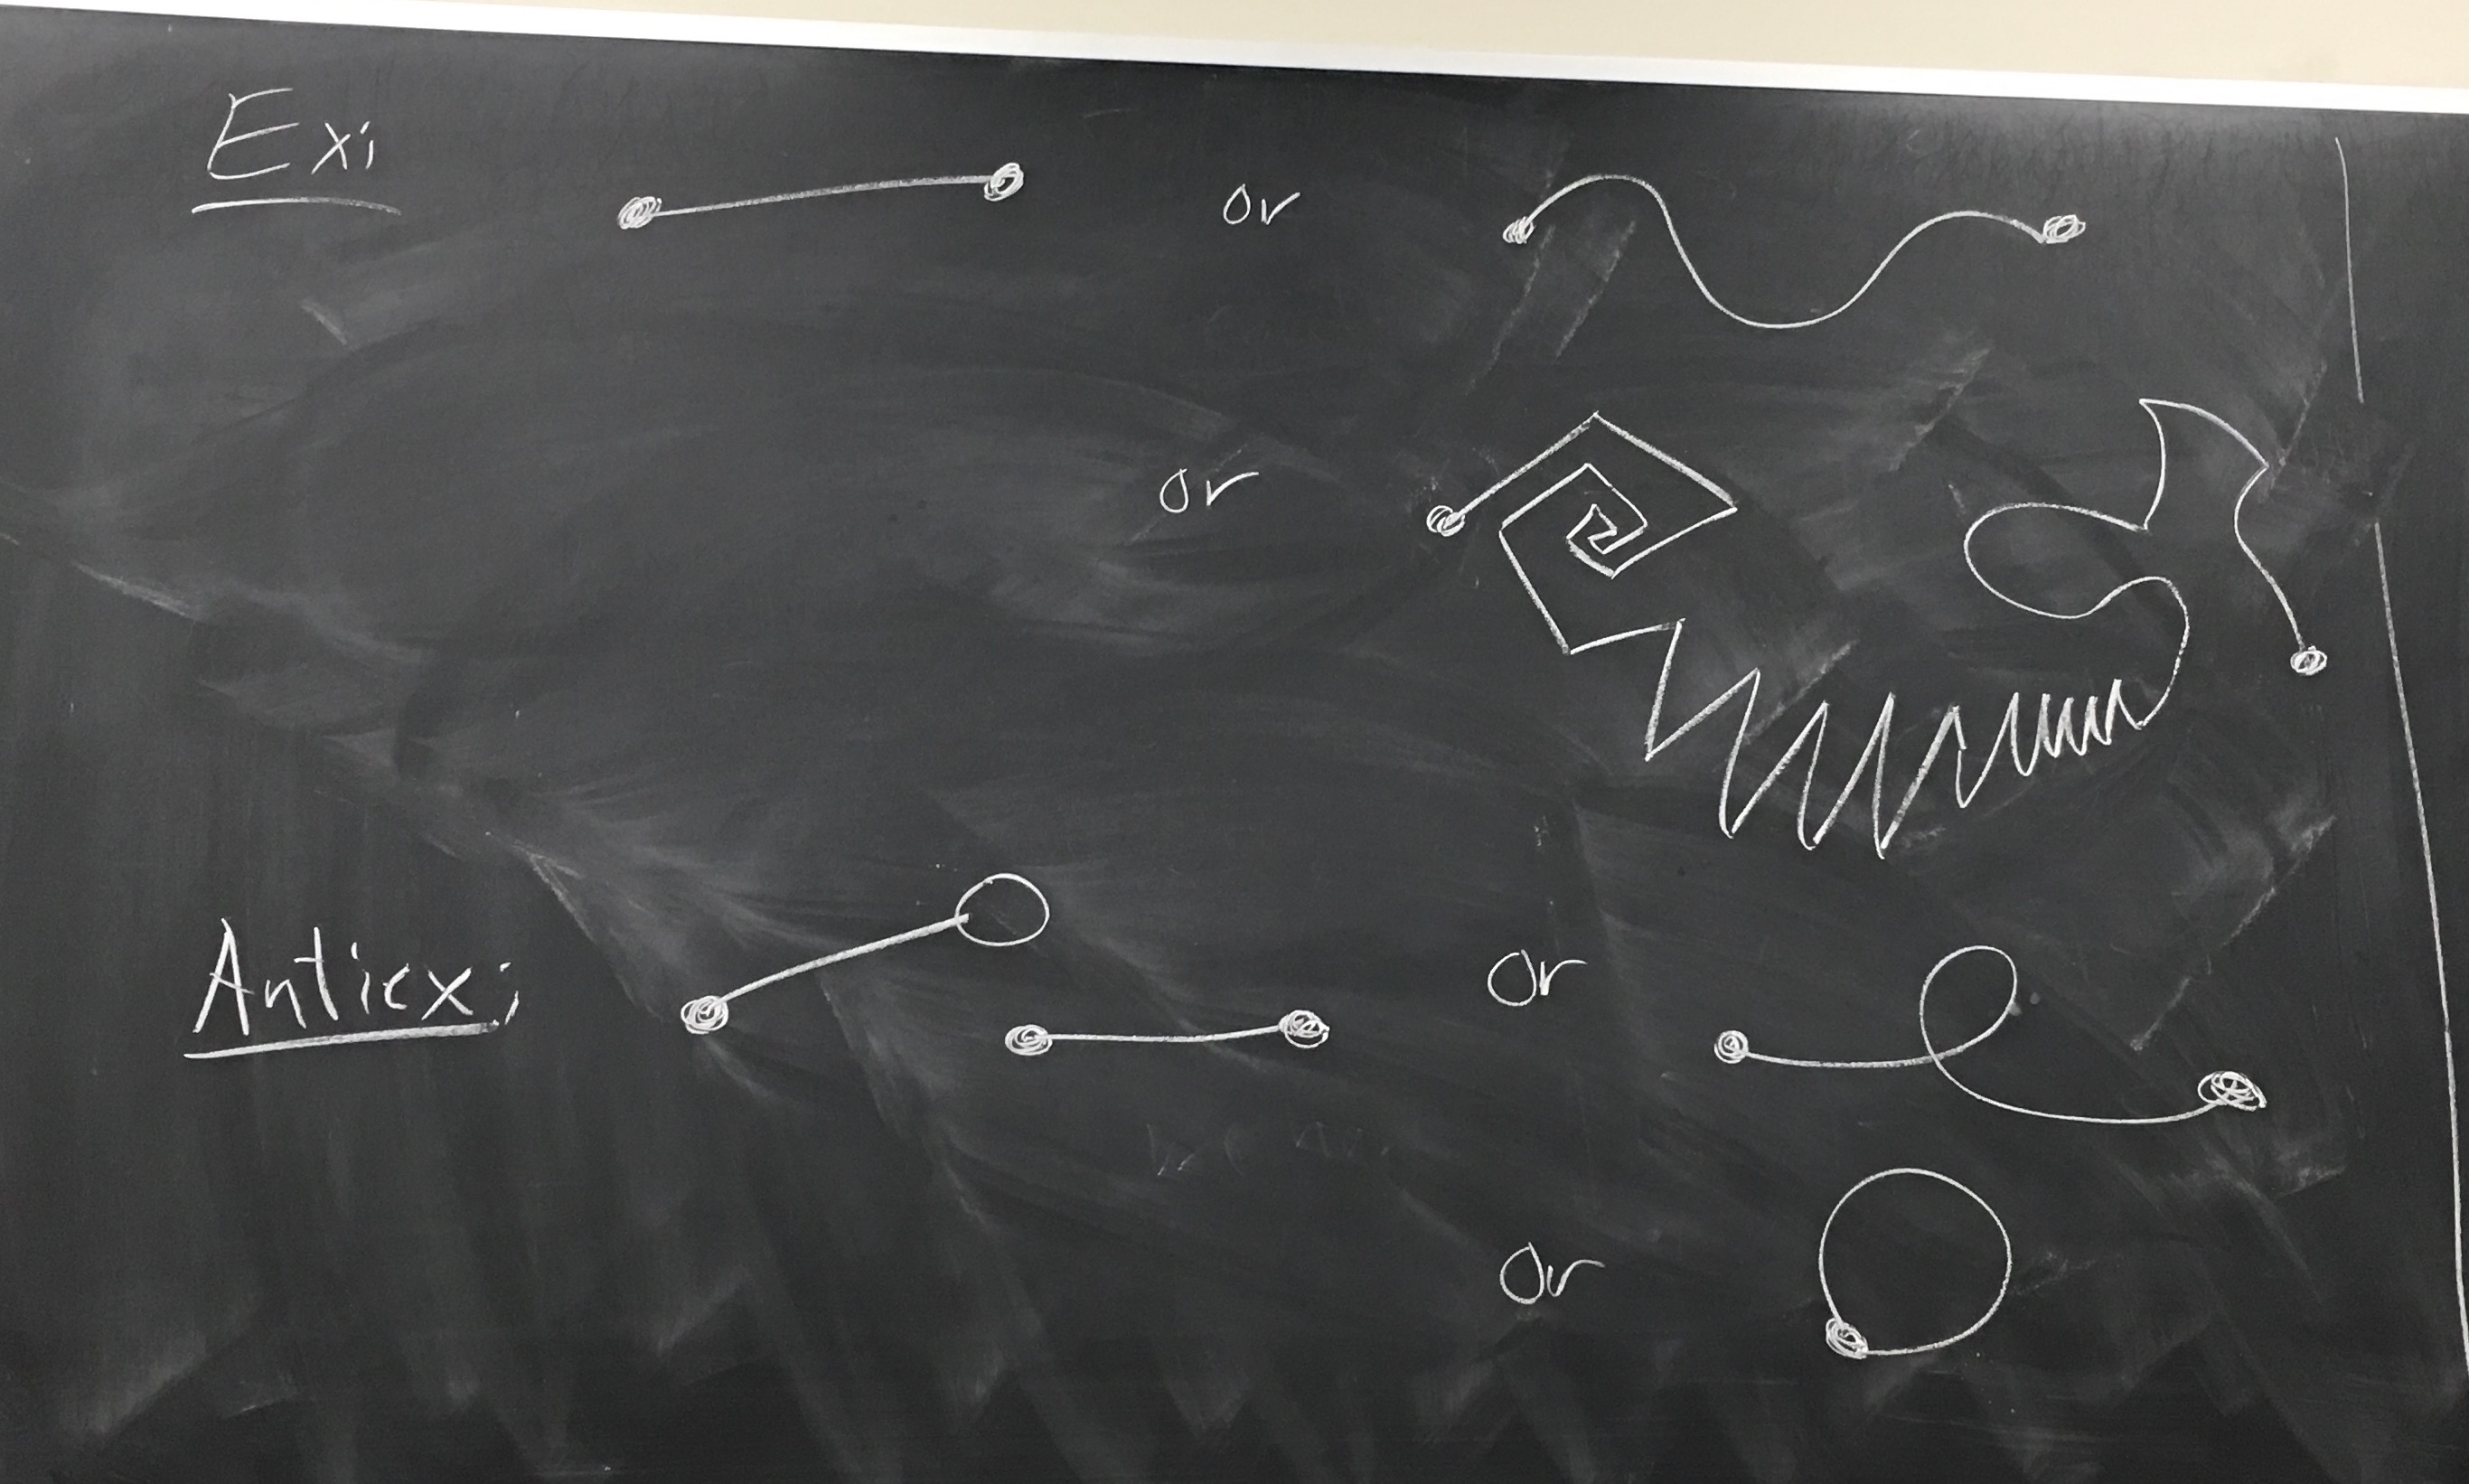 Ex:
or
or
Antiex:
or
or